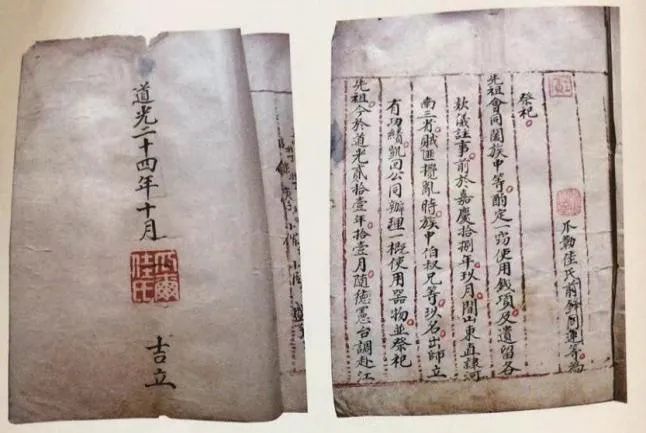 道光二十四年十月
佳氏
吉立
瓜勒佳氏前鋒同連等為
祭祀
先祖會同闔族中等酌定一窃使用錢項及遺留各
欵儀註事前於嘉慶拾捌年玖月間山東直隸河
南三省賊匪擾亂時族中伯叔兄等玖名出師立
有功績凱回公同辦理一概使用器物並祭祀
先祖今於道光貳拾壹年拾壹月隨德憲台調赴江